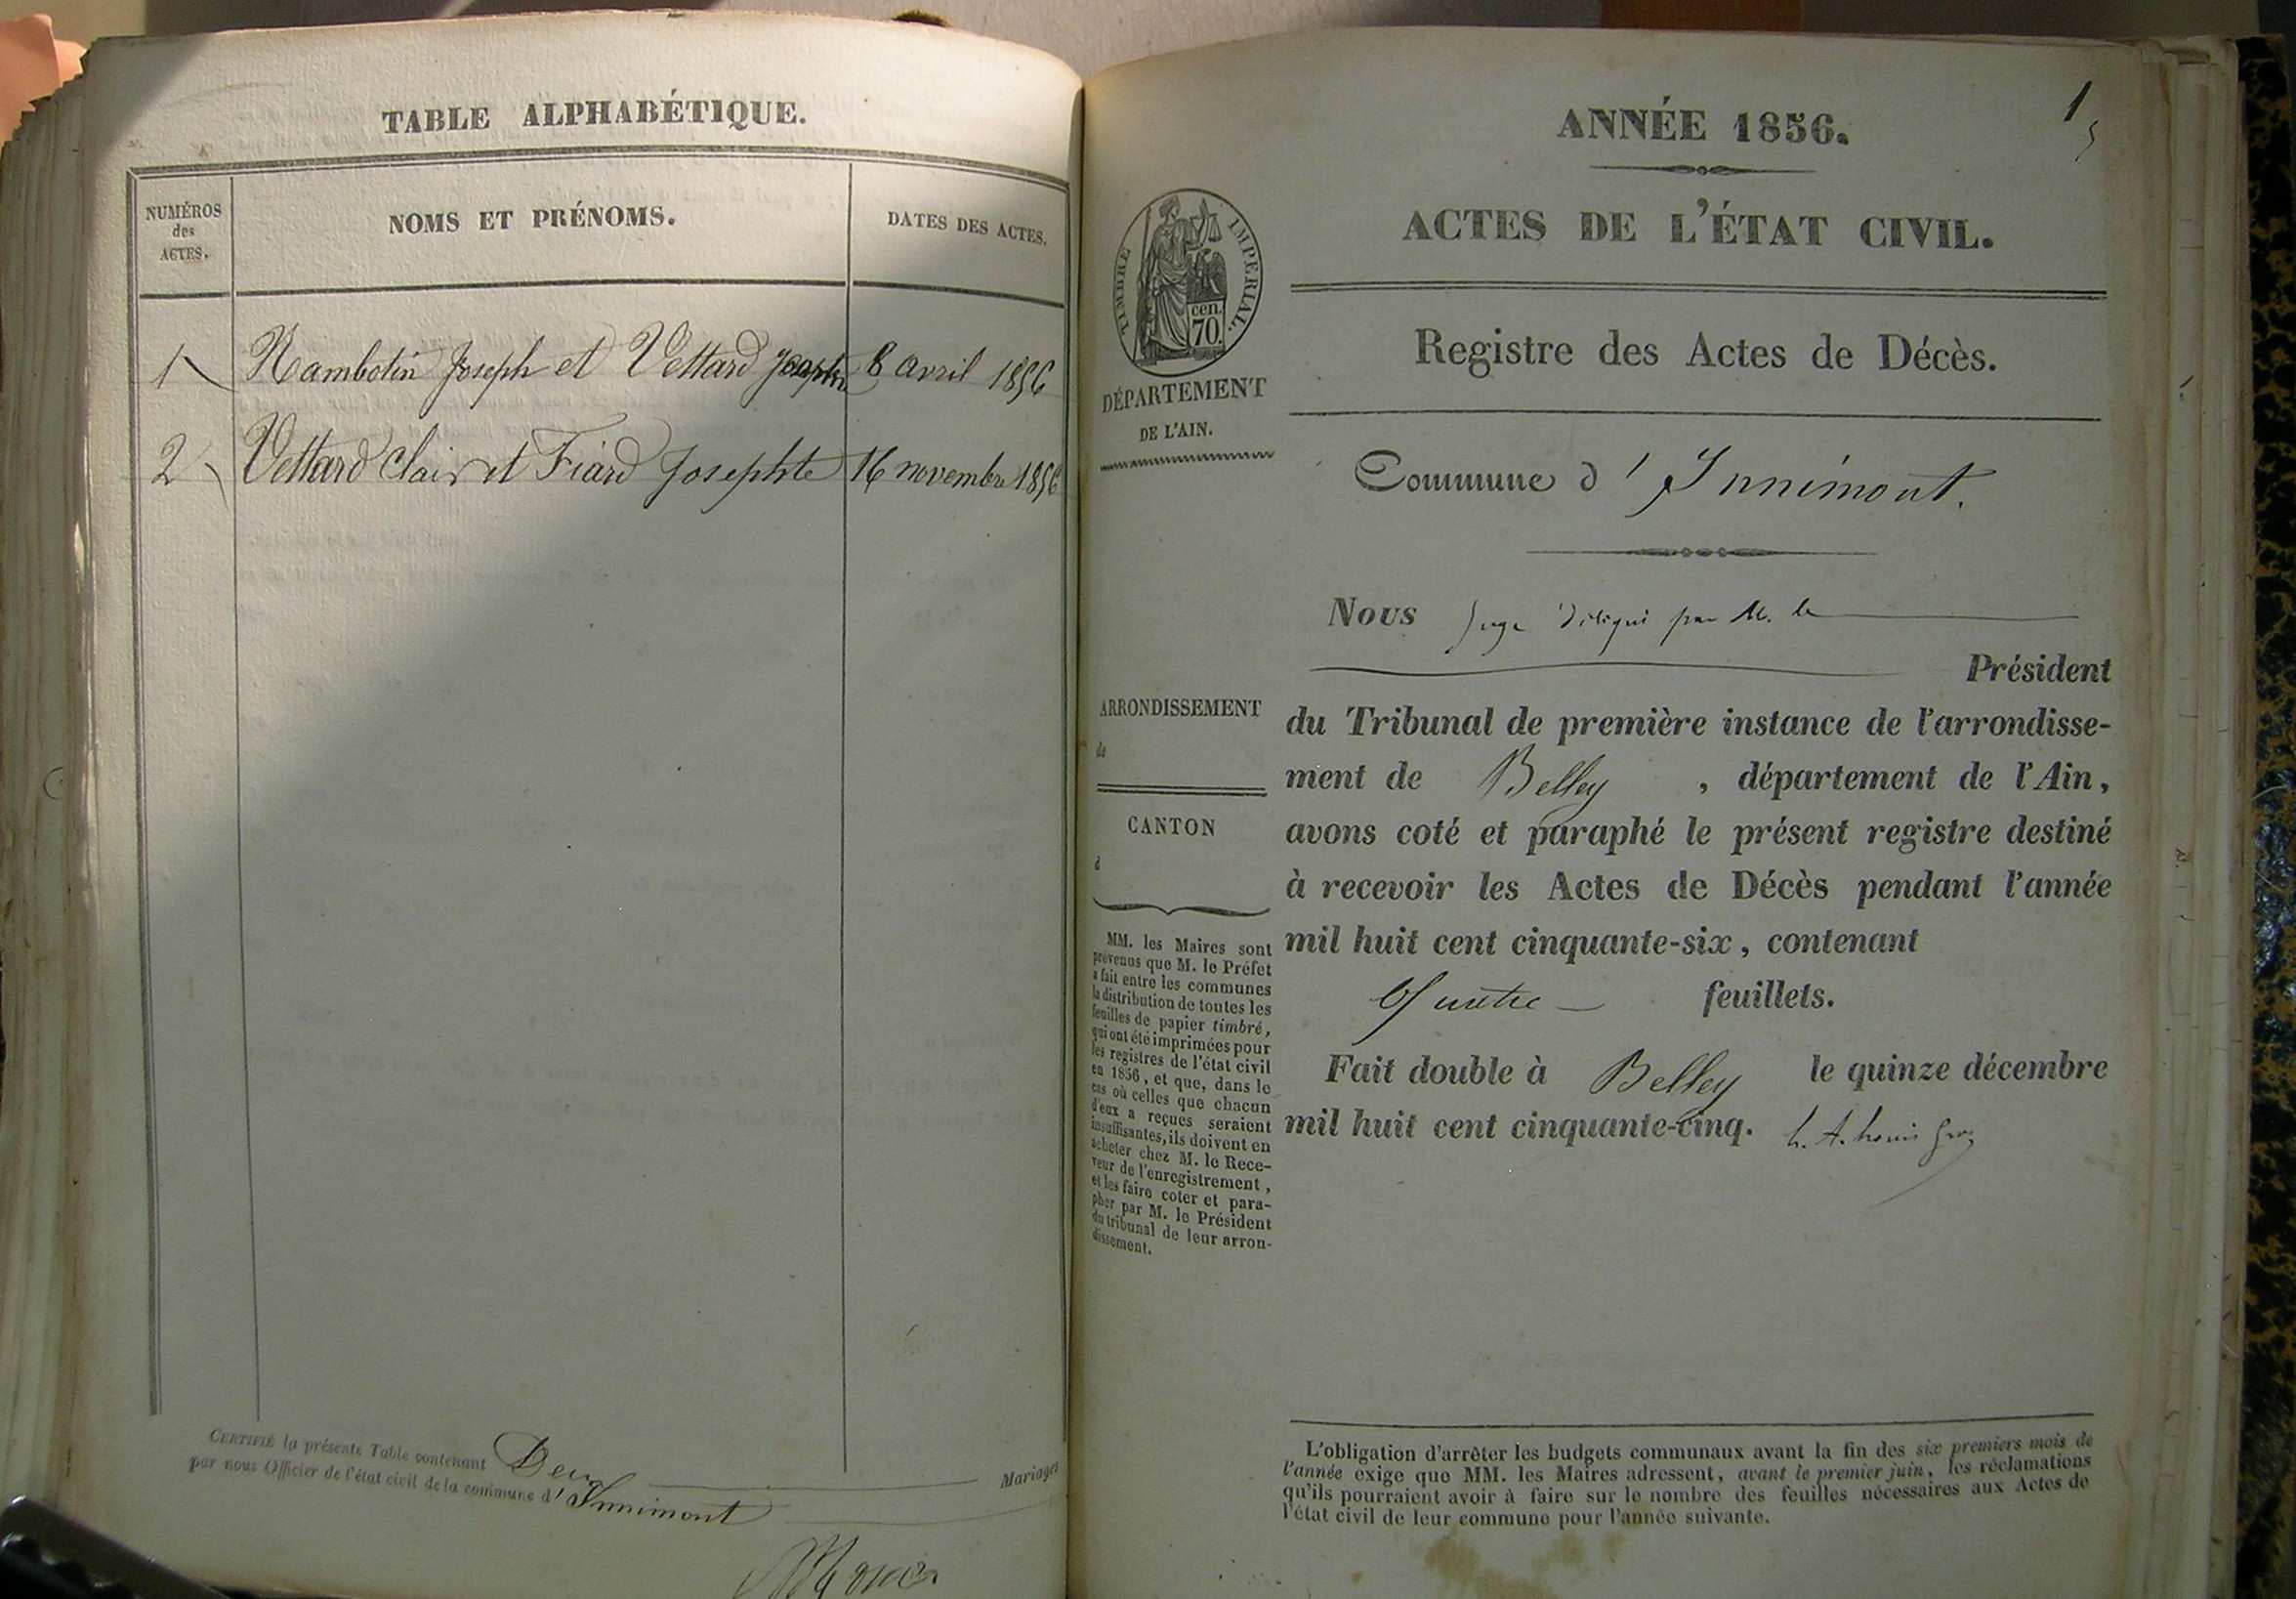 TABLE ALPHABÉTIQUE.
NUMÉROS
des
ACTES.
NOMS ET PRÉNOMS.
DATES DES ACTES.
1 Rambotin Joseph et Vettard 8 avril 1856
2 Vettard Clair et Fiard Josephte 16 novembre 1856
CERTIFIÉ la présente Table contenant Deux Mariages
par nous Officier de l'état civil de la commune d'Innimont
1
ANNÉE 1856.
ACTES DE L'ÉTAT CIVIL.
TIMBRE IMPERIAL.
cen.
70.
DÉPARTEMENT
DE L'AIN.
Registre des Actes de Décès.
Commune d'Innimont.
Nous Juge délégué par M. le
Président
du Tribunal de première instance de l'arrondisse-
ment de Belley, département de l'Ain,
avons coté et paraphé le présent registre destiné
à recevoir les Actes de Décès pendant l'année
mil huit cent cinquante-six, contenant
Quatre feuillets.
Fait double à Belley le quinze décembre
mil huit cent cinquante-cinq.
ARRONDISSEMENT
de
CANTON
d
MM. les Maires sont
prévenus que M. le Préfet
a fait entre les communes
la distribution de toutes les
feuilles de papier timbré,
qui ont été imprimées pour
les registres de l'état civil
en 1856, et que, dans le
cas où celles que chacun
d'eux a reçues seraient
insuffisantes, ils doivent en
acheter chez M. le Rece-
veur de l'enregistrement,
et les faire coter et para-
pher par M. le Président
du tribunal de leur arron-
dissement.
L'obligation d'arrêter les budgets communaux avant la fin des six premiers mois de
l'année exige que MM. les Maires adressent, avant le premier juin, les réclamations
qu'ils pourraient avoir à faire sur le nombre des feuilles nécessaires aux Actes de
l'état civil de leur commune pour l'année suivante.